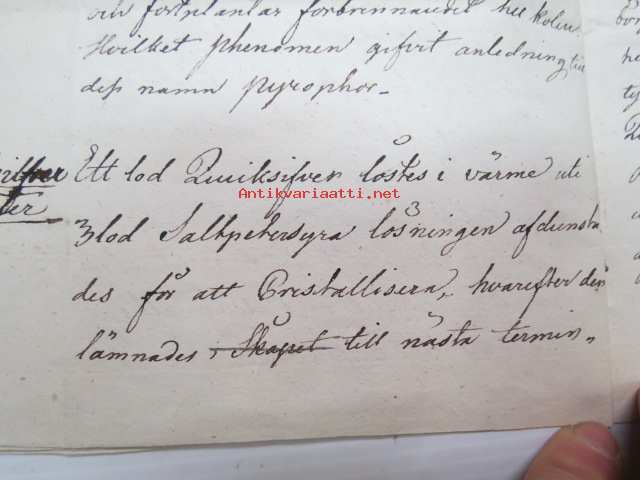 och fortplantar forbrennandet hel kolen
Hvilket phenomen gifvit anledning till
dess namn Pyrophor.
Ett lod Quiksifver löstes i värme uti
3 lod Saltpetersyra lösningen afdunsta
des för att Cristallisera, hvarefter den
lämnades, Skapet till nästa termin.
Antikvariaatti.net